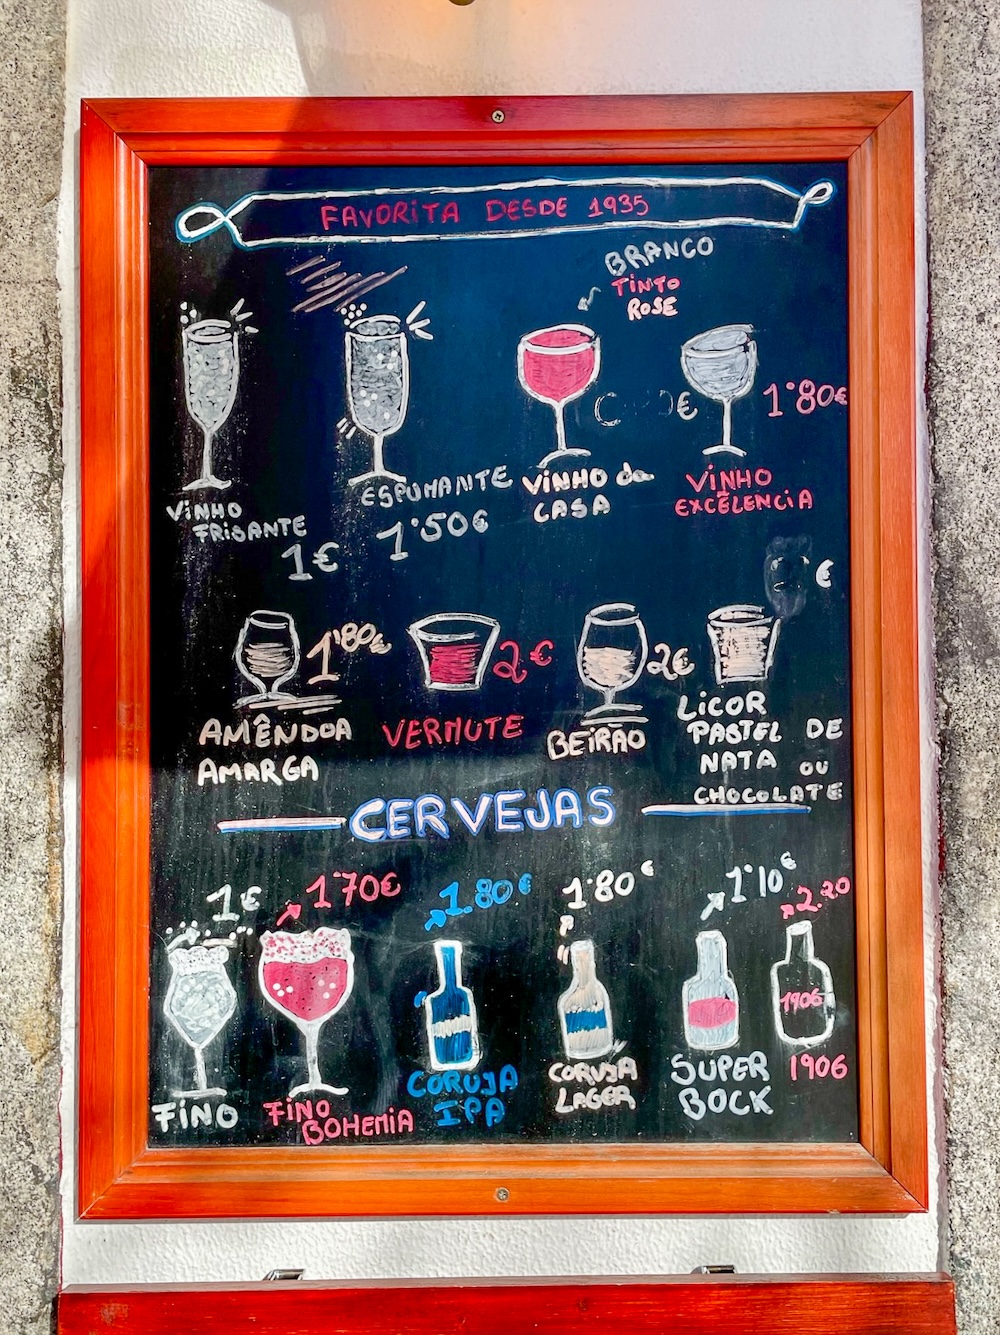 FAVORITA DESDE 1935
BRANCO
TINTO
ROSE
€
1'80€
VINHO
FRISANTE
1€
ESPUMANTE
1'50€
VINHO da
CASA
VINHO
EXCÊLENCIA
1'80€
AMÊNDOA
AMARGA
2€
VERMUTE
2€
BEIRÃO
€
LICOR
PASTEL DE
NATA OU
CHOCOLATE
CERVEJAS
1€
1'70€
1.80€
1'80€
1'10€
2.20
1906
FINO
FINO
BOHEMIA
CORUJA
IPA
CORUJA
LAGER
SUPER
BOCK
1906